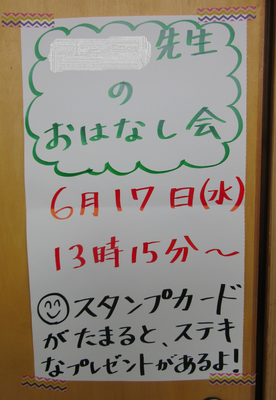 先生
の
おはなし会
6月17日(水)
13時15分～
スタンプカード
がたまると、ステキ
なプレゼントがあるよ!